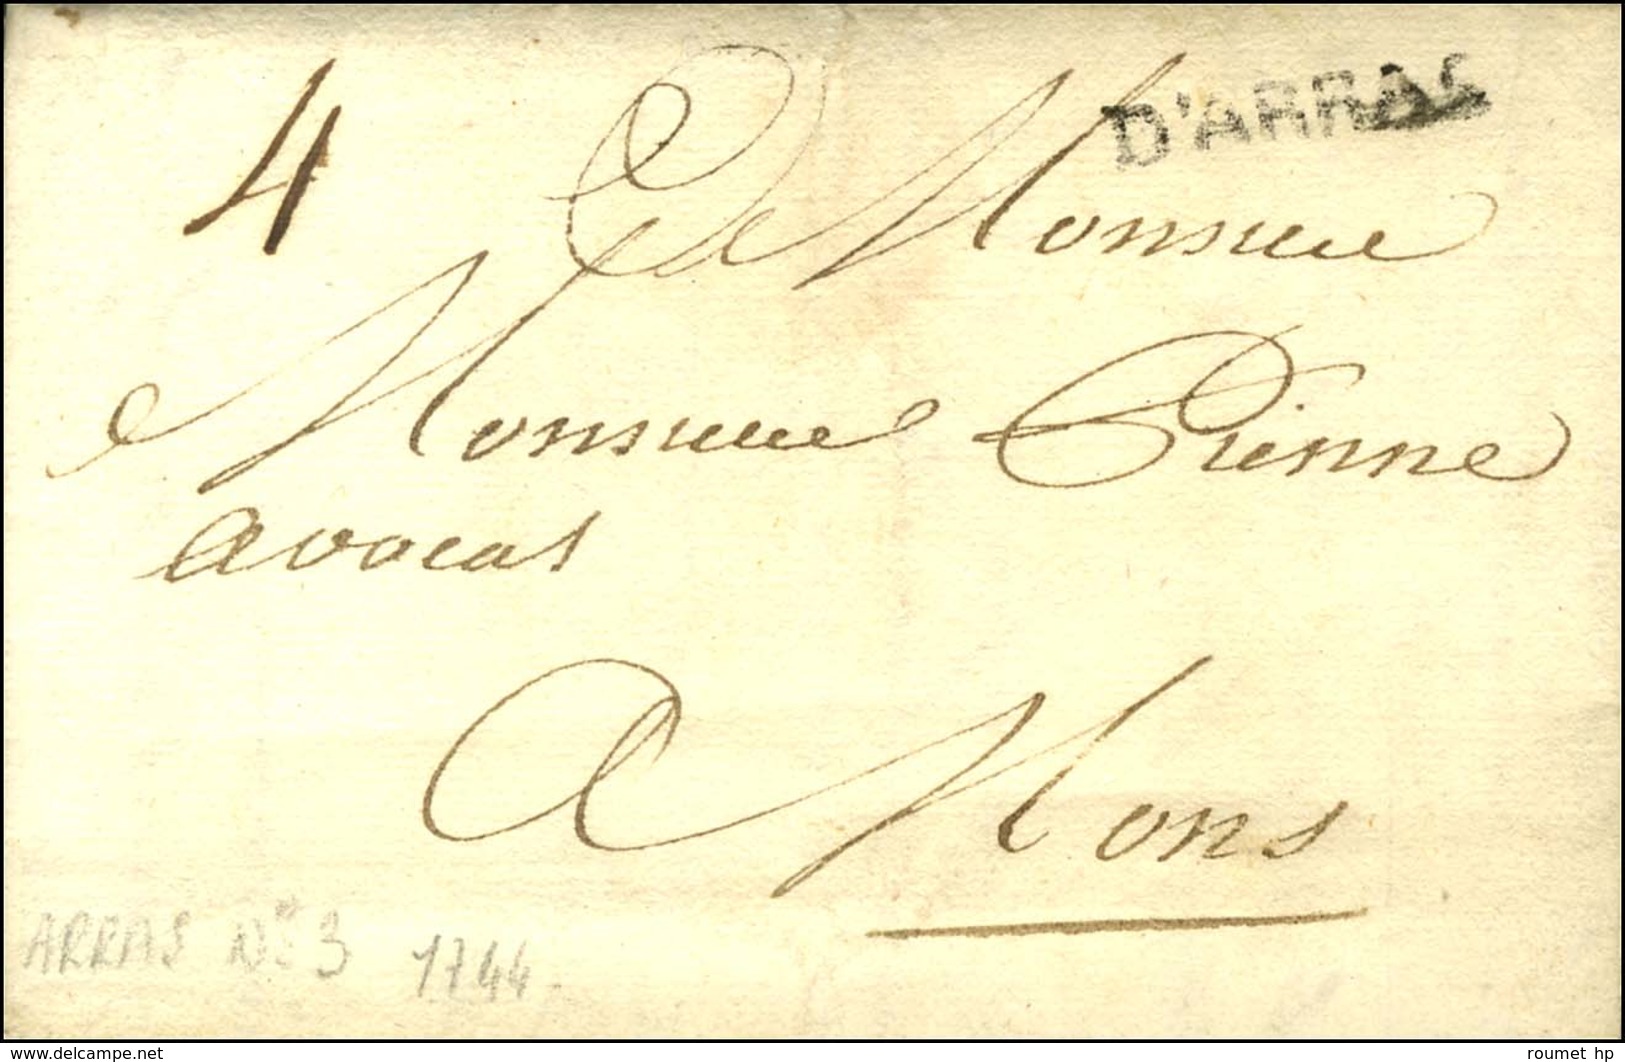 4
D'ARRAS
A Monsieur
Monsieur Crienne
avocat
A Mons
ARRAS N° 3 1744
www.delcampe.net
roumet hp